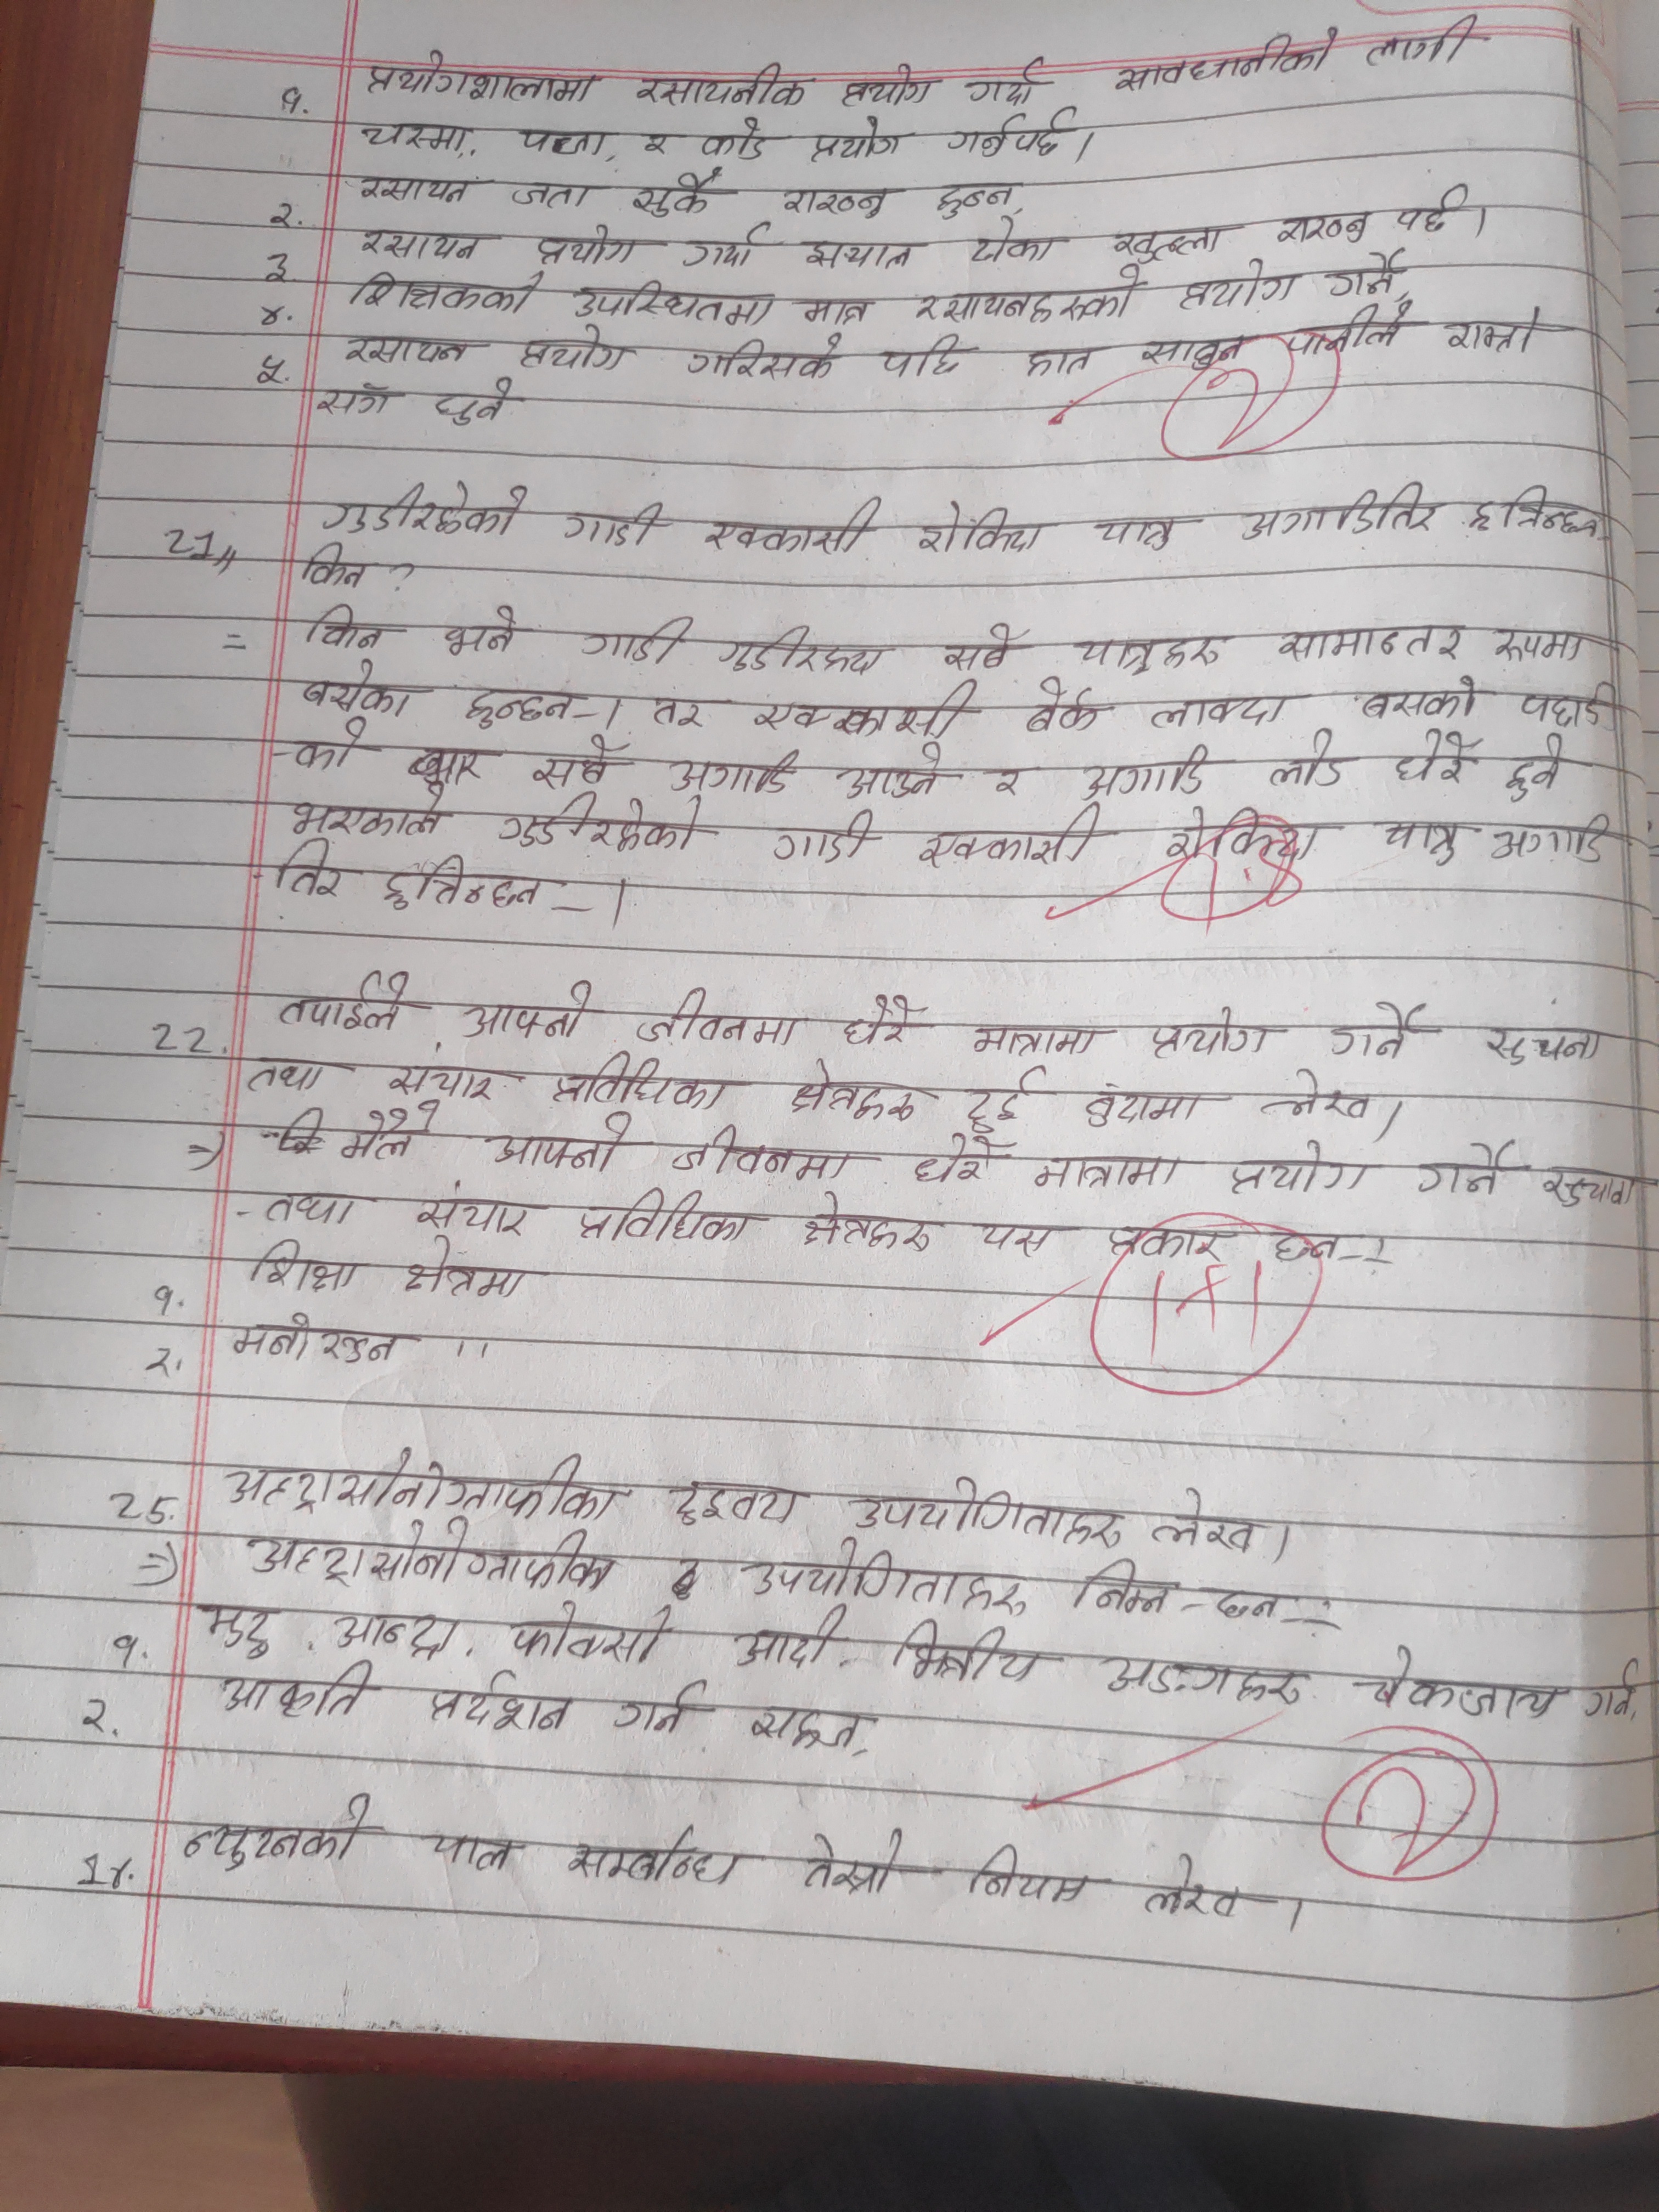 १. प्रयोगशालामा रसायनीक प्रयोग गर्दा सावधानीको लागी
चस्मा, पञ्जा, र कोड प्रयोग गर्नुपर्छ।
२. रसायन जता सुकै राख्नु हुन्न,
३. रसायन प्रयोग गर्दा झयाल ढोका खुल्ला राख्नु पर्छ।
४. शिक्षकको उपस्थितमा मात्र रसायनहरुको प्रयोग गर्ने,
५. रसायन प्रयोग गरिसके पछि हात साबुन पानीले राम्रो
सँग धुने
21,, गुडीरहेको गाडी एक्कासी रोकिदा यात्रु अगाडितिर हुत्तिन्छन्
किन ?
= किन भने गाडी गुडीरहदा सबै यात्रुहरु सामान्तर रुपमा
बसेका हुन्छन्। तर एक्कासी बेर्क लाक्दा बसको पछाडि
-को भार सबै अगाडि आउने र अगाडि लोड धेरै हुने
भएकाले गुडीरहेको गाडी एक्कासी रोकिदा यात्रु अगाडि
-तिर हुत्तिन्छन्।
22. तपाईले आफ्नो जीवनमा धेरै मात्रामा प्रयोग गर्ने सुचना
तथा संचार प्रविधिका क्षेत्रहरु दुई बुंदामा लेख।
=> मैले आफ्नो जीवनमा धेरै मात्रामा प्रयोग गर्ने सुचाना
-तथा संचार प्रविधिका क्षेत्रहरु यस प्रकार छन्-:
१. शिक्षा क्षेत्रमा
२. मनोरञ्जन ''
1+1
25. अल्ट्रासोनोग्राफीका दुइवटा उपयोगिताहरु लेख।
=> अल्ट्रासोनोग्राफीका उपयोगिताहरु निम्न छन्-:
१. मुटु, आन्द्रा, फोक्सो आदी भित्रीय अङ्गहरु चेकजाच गर्न,
२. आकृति प्रर्दशन गर्न सहज,
2
1४. न्युटनको चाल सम्बन्धि तेस्रो नियम लेख।